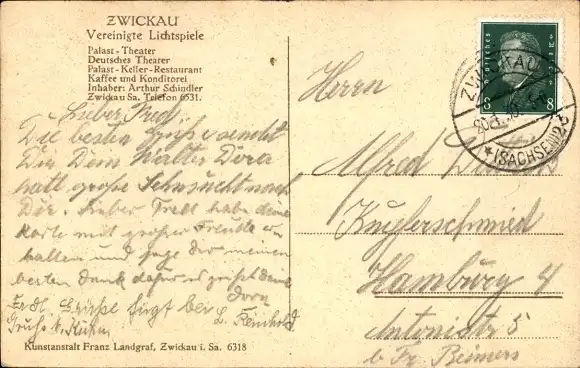 ZWICKAU
Vereinigte Lichtspiele
Palast-Theater
Deutsches Theater
Palast-Keller-Restaurant
Kaffee und Konditorei
Inhaber: Arthur Schindler
Zwickau Sa. Telefon 6531.
Lieber Fred.
Die besten Grüße sendet
Dir Dein Walter Dora
hatt große Sehnsucht nach
Dir. Lieber Fred habe deine
Karte mit großer Freude er
halten und sage dir meinen
besten Dank dafür es grüßt deine
Dora
Frdl. Grüße fügt bei
Gruß
Kunstanstalt Franz Landgraf, Zwickau i. Sa. 6318
Deutsches Reich
8 8
ZWICKAU
(SACHSEN) 2
Herrn
Alfred
Kupferschmied
Hamburg 4
Antonistr 5
b Fr. Beimers